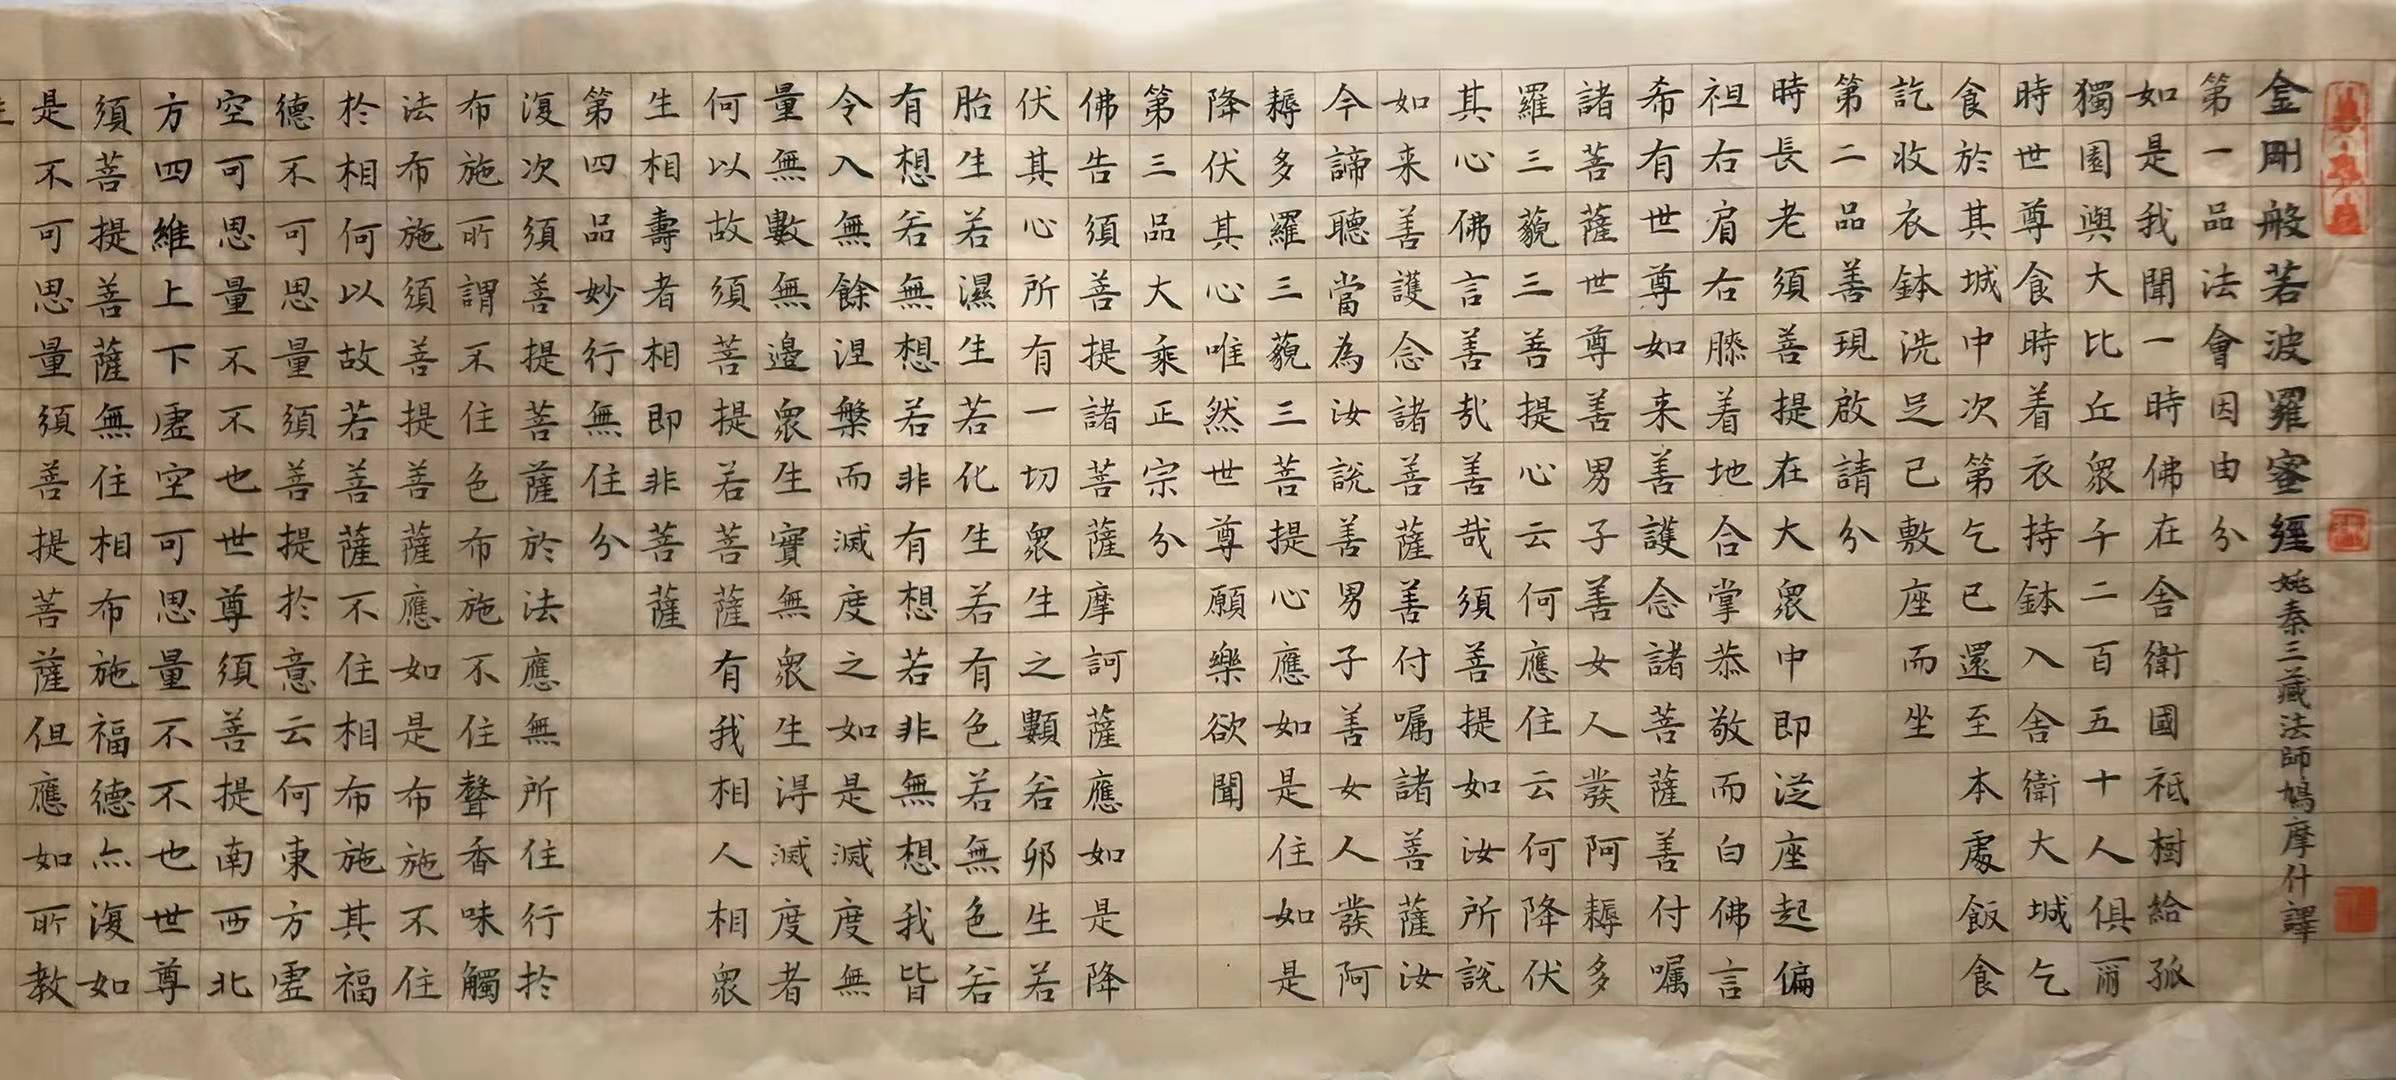 金剛般若波羅蜜經 姚秦三藏法師鳩摩什譯
第一品法會因由分
如是我聞一時佛在舍衛國祇樹給孤
獨園與大比丘眾千二百五十人俱爾
時世尊食時着衣持鉢入舍衛大城乞
食於其城中次第乞已還至本處飯食
訖收衣鉢洗足已敷座而坐
第二品善現啟請分
時長老須菩提在大眾中即從座起偏
袒右肩右膝着地合掌恭敬而白佛言
希有世尊如来善護念諸菩薩善付嘱
諸菩薩世尊善男子善女人發阿耨多
羅三藐三菩提心云何應住云何降伏
其心佛言善哉善哉須菩提如汝所說
如来善護念諸菩薩善付嘱諸菩薩汝
今諦聽當為汝說善男子善女人發阿
耨多羅三藐三菩提心應如是住如是
降伏其心唯然世尊願樂欲聞
第三品大乘正宗分
佛告須菩提諸菩薩摩訶薩應如是降
伏其心所有一切眾生之類若卵生若
胎生若濕生若化生若有色若無色若
有想若無想若非有想若非無想我皆
令入無餘涅槃而滅度之如是滅度無
量無數無邊眾生實無眾生得滅度者
何以故須菩提若菩薩有我相人相眾
生相壽者相即非菩薩
第四品妙行無住分
復次須菩提菩薩於法應無所住行於
布施所謂不住色布施不住聲香味觸
法布施須菩提菩薩應如是布施不住
於相何以故若菩薩不住相布施其福
德不可思量須菩提於意云何東方虛
空可思量不不也世尊須菩提南西北
方四維上下虛空可思量不不也世尊
須菩提菩薩無住相布施福德亦復如
是不可思量須菩提菩薩但應如所教